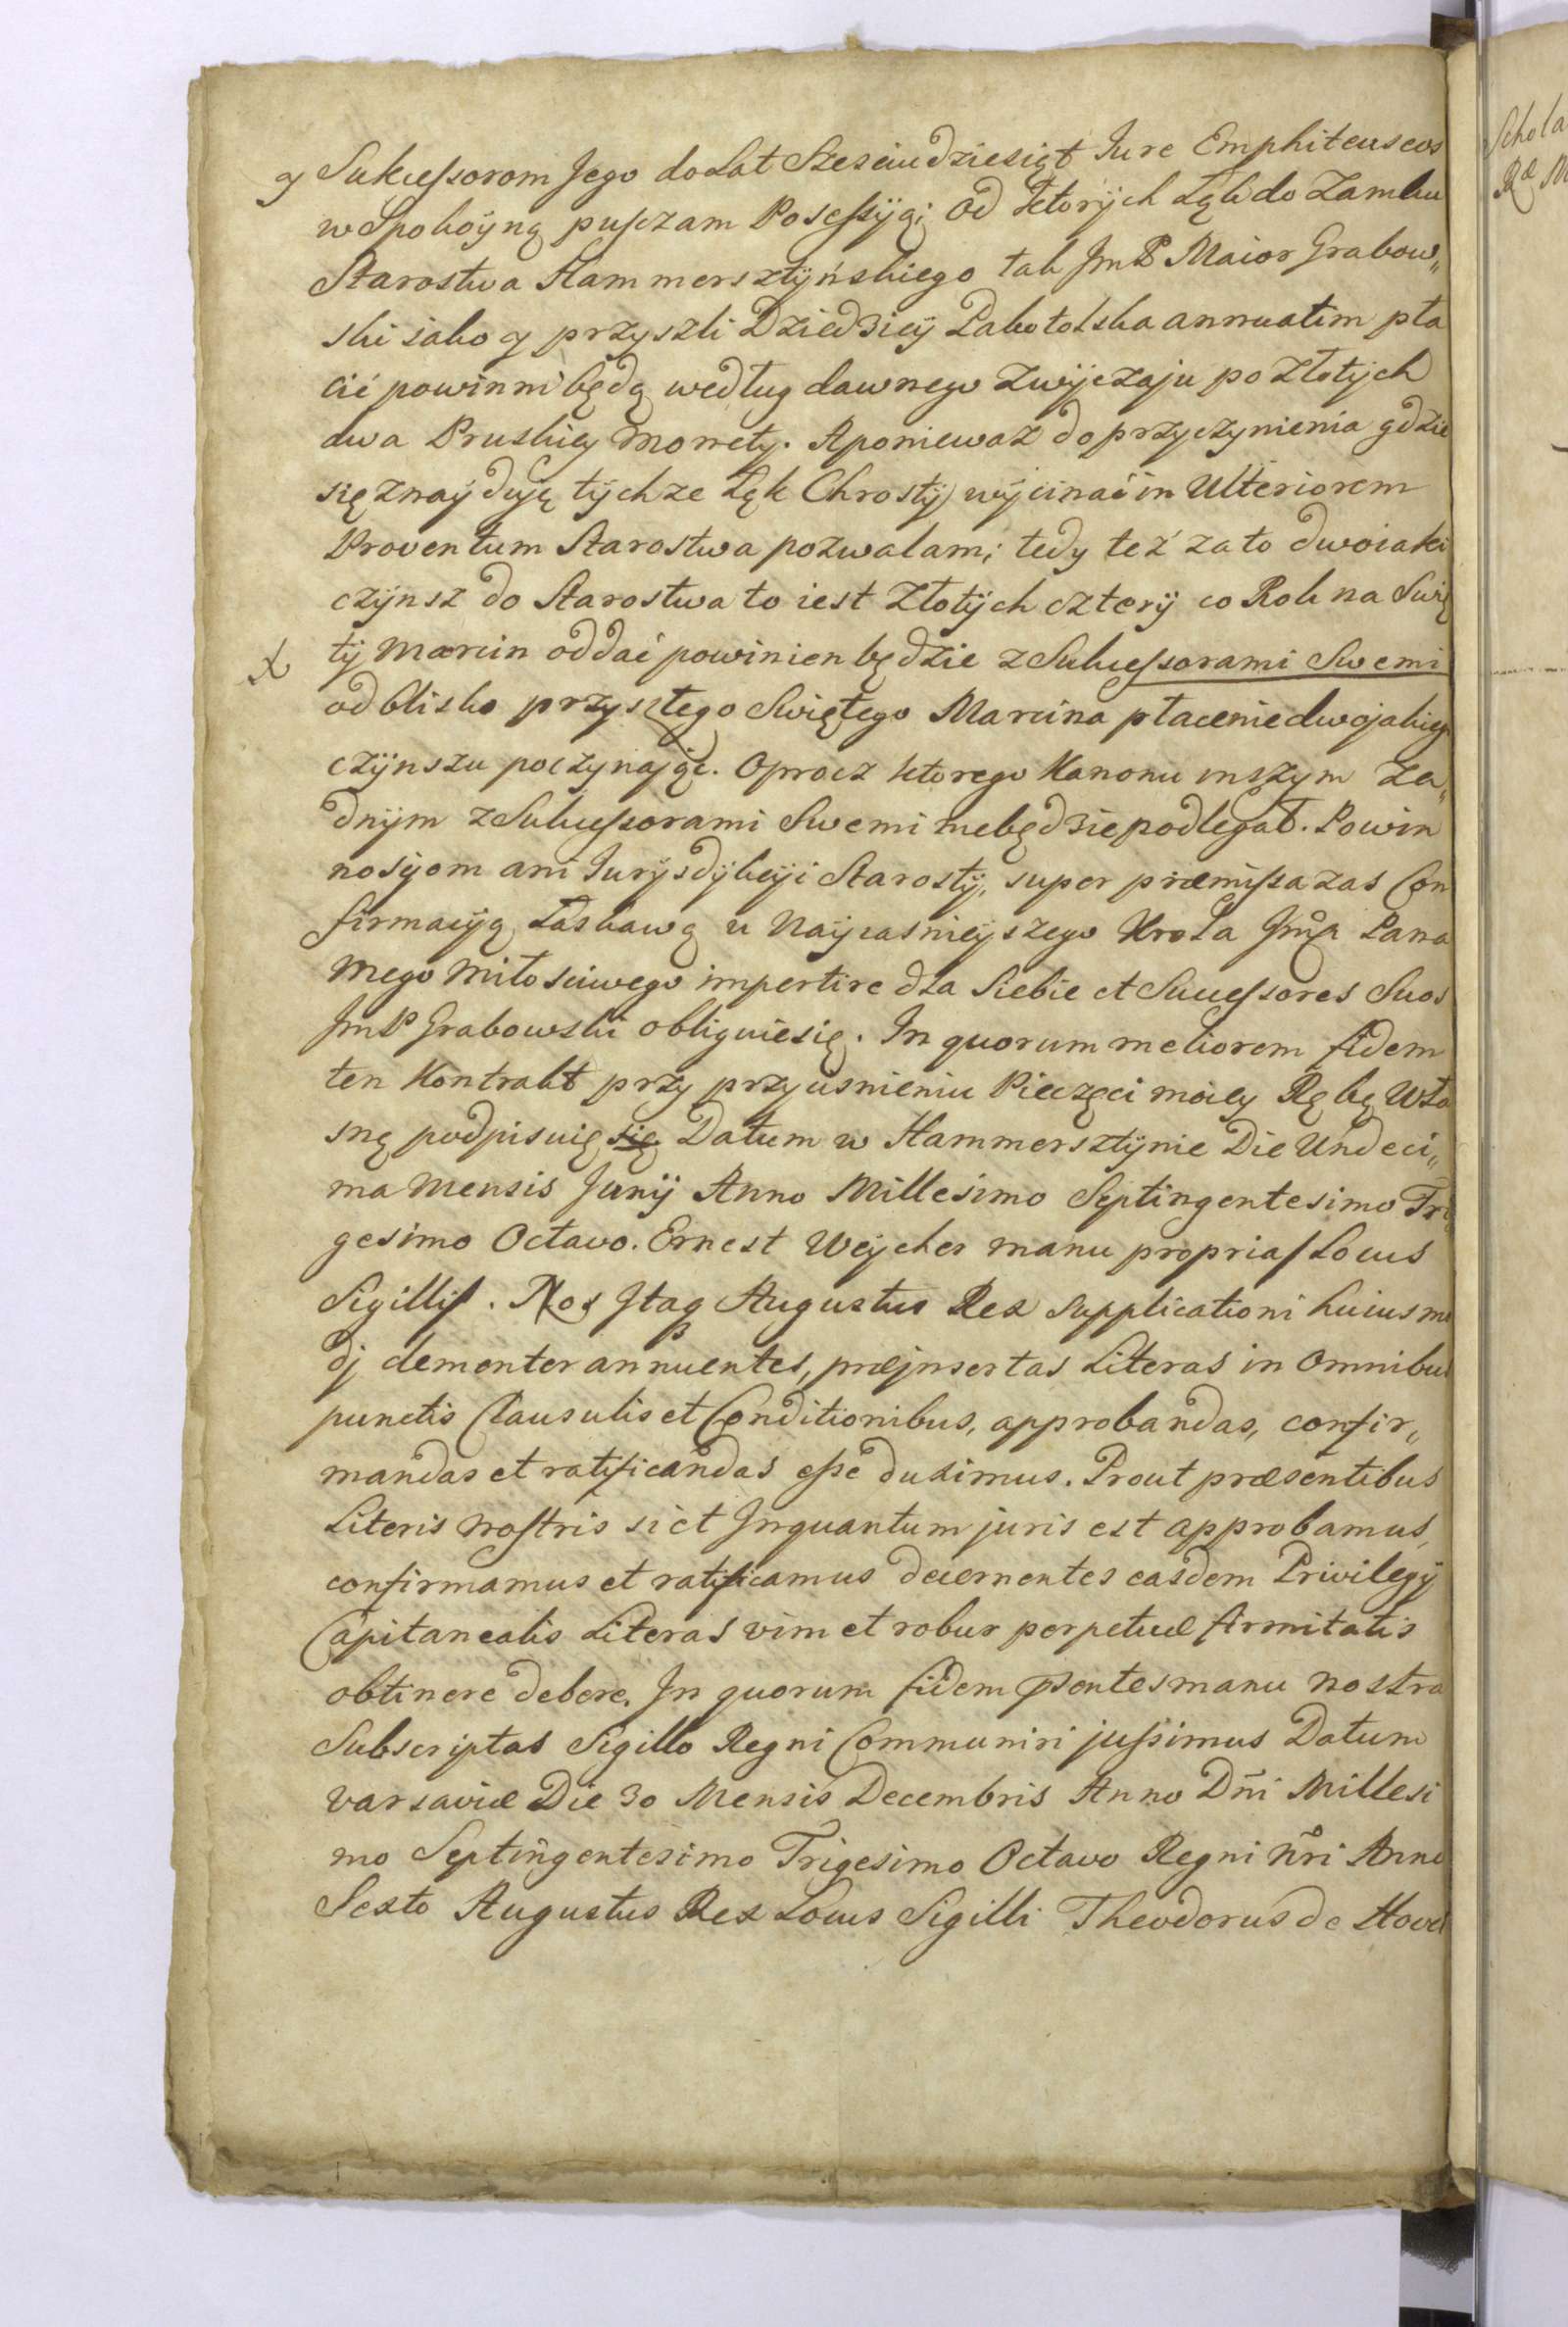 y Sukcessorom Jego do Lat Szesciudziesiąt Iure Emphiteuseos
w Spokoÿną puszczam Possessÿą; Od ktorÿch Łąk do Zamku
Starostwa Hammersztÿńskiego tak JmP Maior Grabow„
ski iako y przyszli Dziedzicÿ annuatim pła
cić powinni będą według dawnego Zwÿczaju po Złotÿch
dwa Pruskiey Monety. A poniewaz do przyczynienia gdzie
się znaÿduję tÿchze Łąk Chrostÿ wÿcinać in Ulteriorem
Proventum Starostwa pozwalam; tedy też za to dwoiaki
czÿnsz do Starostwa to iest Złotÿch czterÿ co Rok na Swię
tÿ Marcin oddać powinien będzie z Sukcessorami Swemi
od blisko przyszłego Swiętego Marcina płacenie dwojakieg
czÿnszu poczynając. Oprocz ktorego Kanonu inszym Ża„
dnÿm z Sukcessorami Swemi niebędzie podlegał. Powin
nosÿom ani Jurÿsdÿkcÿi Starostÿ, super præmissa zas Con
firmacÿą Łaskawą u Naÿiasnieÿszego Krola Jmśći Pana
Mego Miłosciwego impertire dla Siebie et Successores Suos
JmP Grabowski obliguie się. In quorum meliorem fidem
ten Kontrakt przy przycisnieniu Pieczęci moiey Ręką Wła
sną podpisuię się Datum w Hammersztÿnie Die Undeci„
ma Mensis Junÿ Anno Millesimo Septingentesimo Tri
gesimo Octavo. Ernest Weÿcher manu propria/ Locus
Sigilli/. Nos Itaq Augustus Rex supplicationi huiusmo
dj clementer annuentes, præjnsertas Literas in Omnibus
punctis Clausulis et Conditionibus, approbandas, confir„
mandas et ratificandas esse duximus. Prout præsentibus
Literis nostris si et Inquantum juris est approbamus,
confirmamus et ratificamus decernentes easdem Privilegÿ
Capitanealis Literas vim et robur perpetuæ firmitatis
obtinere debere. In quorum fidem pntes manu nostra
Subscriptas Sigillo Regni Communiri jussimus Datum
Varsaviæ Die 30 Mensis Decembris Anno Dñi Millesi
mo Septingentesimo Trigesimo Octavo Regni ñri Anno
Sexto Augustus Rex Locus Sigilli Theodorus de